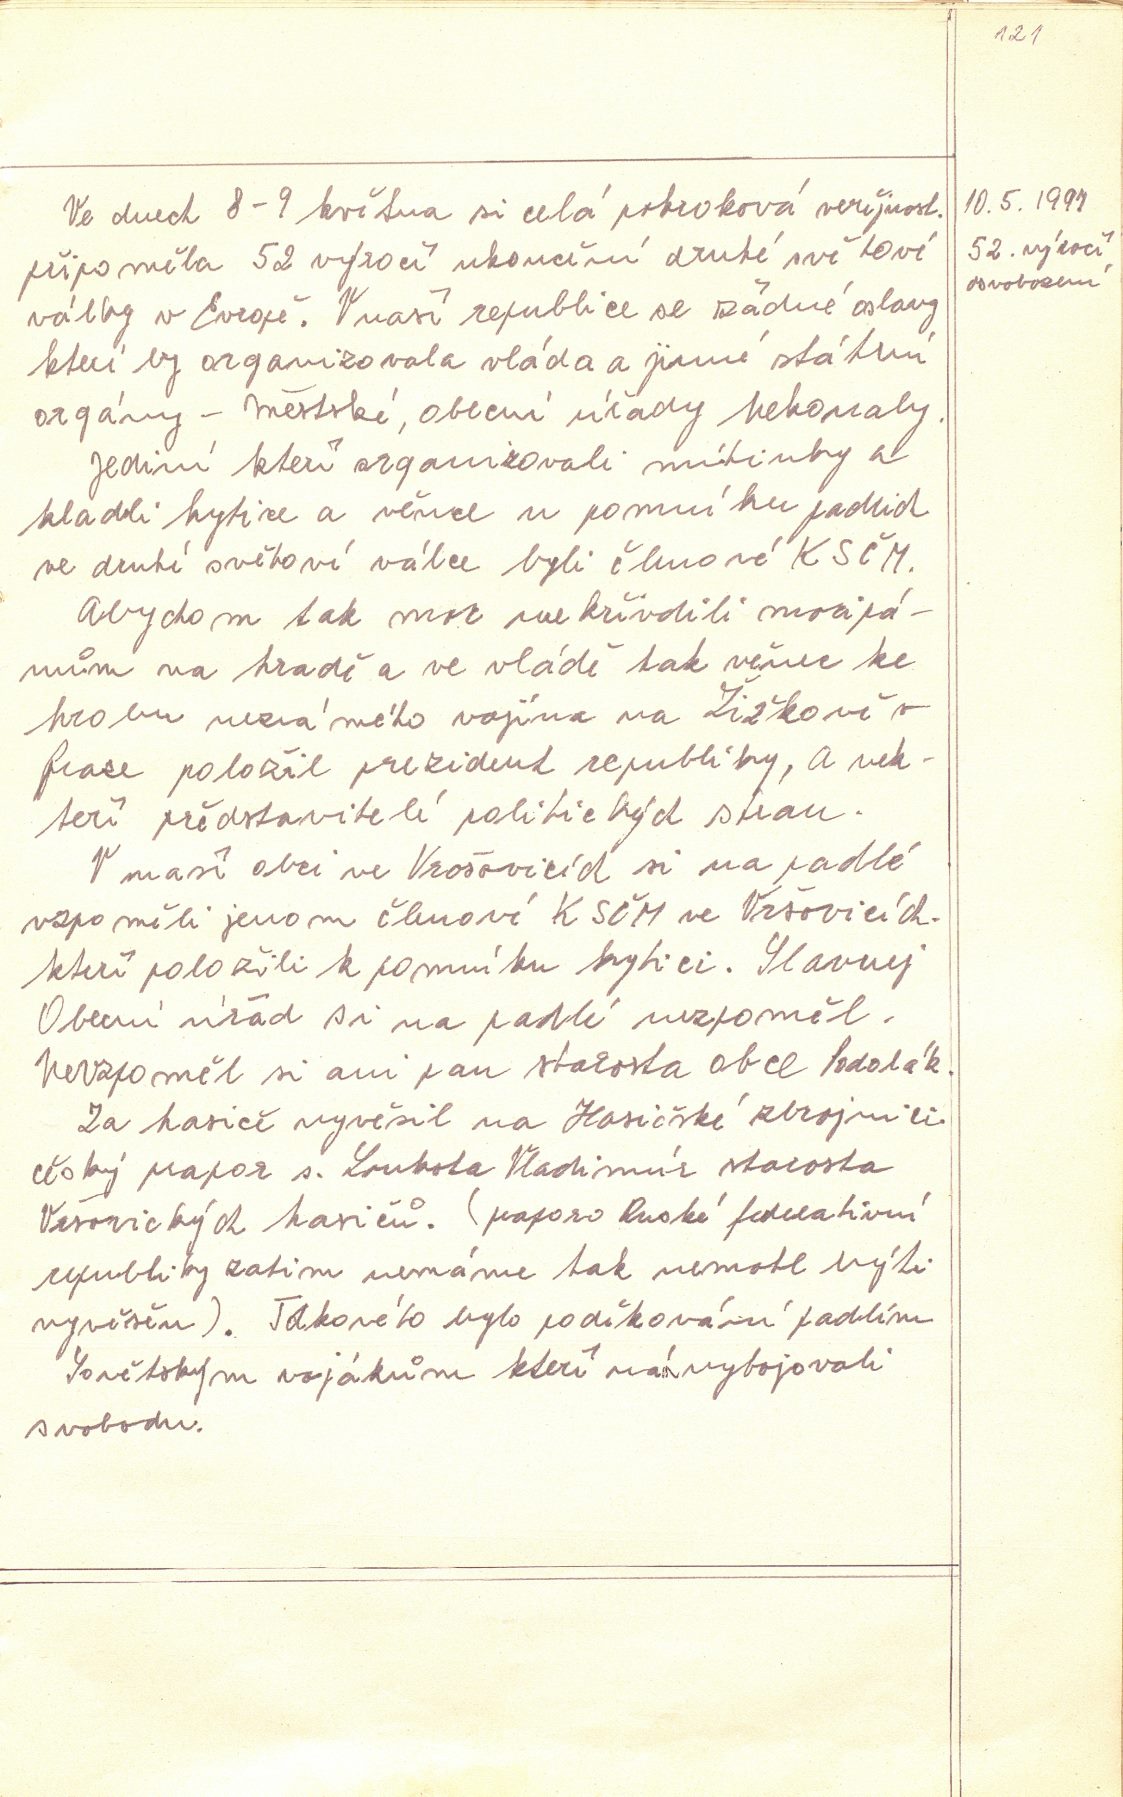 121
10. 5. 1997
52. výročí
osvobození
Ve dnech 8-9 května si celá pokroková veřijnost.
připoměla 52 výročí ukončení druhé světové
války v Evropě. V naší republice se žádné oslavy
kteri by organizovala vláda a jinné státní
orgány - městské, obecní úřady nekonaly.
Jediní kteří organizovali mítinky a
kladdi kytice a věnce u pomníku padlich
ve druhé světové válce byli členové KSČM.
Abychom tak moc nekřivdili mocipá-
nům na hradě a ve vládě tak věnec ke
hrobu neznámého vojína na Žižkově v
Praze položil prezident republiky, a nek-
teří představitelé politických stran.
V naší obci ve Vršovicích si na padlé
vzpoměli jenom členové KSČM ve Vršovicích.
kteří položili k pomníku kytici. Slavnej
Obecní úřad si na padlé nezpoměl.
Nevzpoměl si ani pan starosta obce Podolák.
Za hasiče vyvěsil na Hasičské zbrojnici.
český prapor s. Loukota Vladimír starosta
Vršovických hasičů. (praporo Ruské federativní
republiky zatim nemáme tak nemohl býti
vyvěsěn). Takovéto bylo poděkování padlím
Sovětským vojákům kteří nám vybojovali
svobodu.